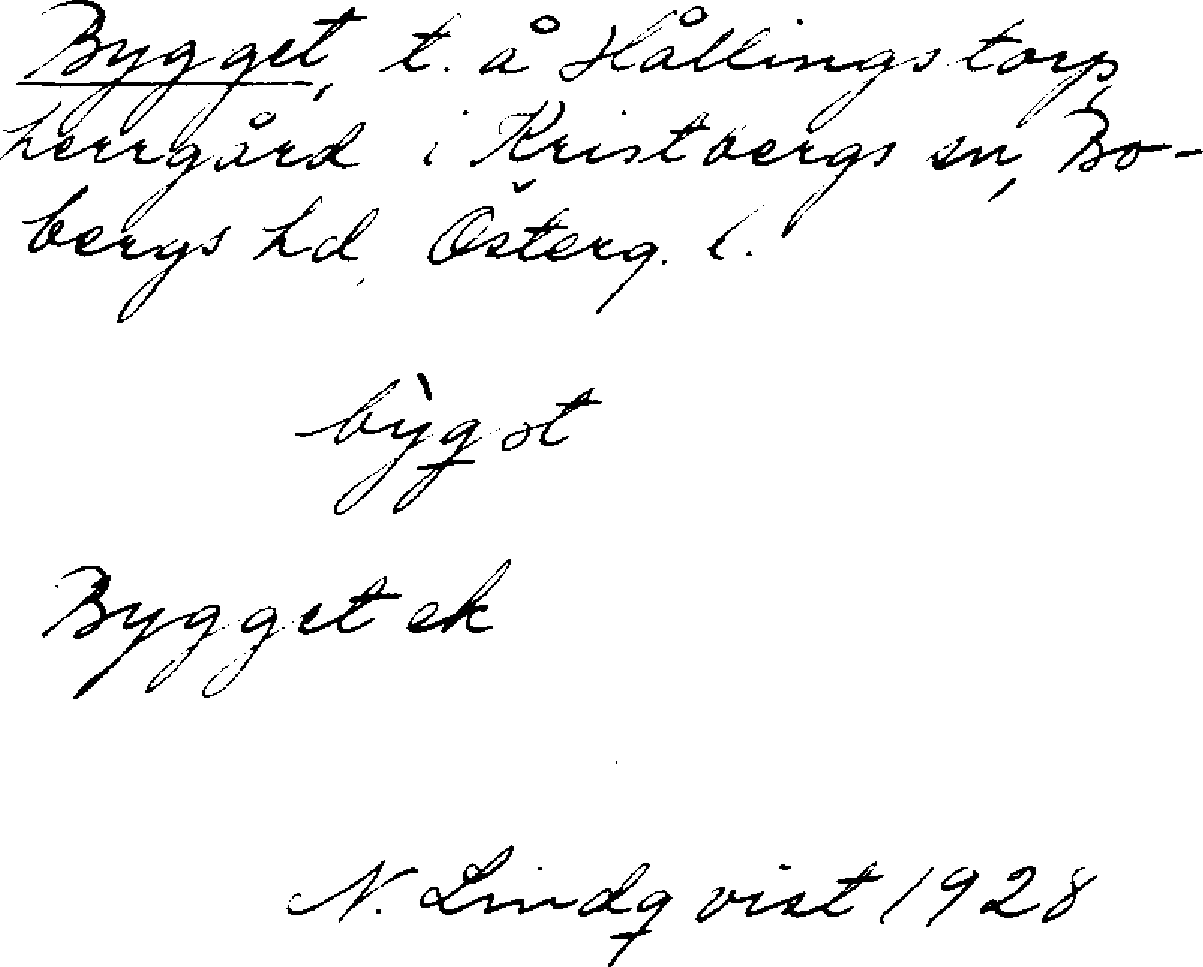 Bygget, t. å Hållingstorp
herrgård i Kristbergs sn, Bo-
bergs hd, Österg. l.
Bygget ek
N. Lindqvist 1928